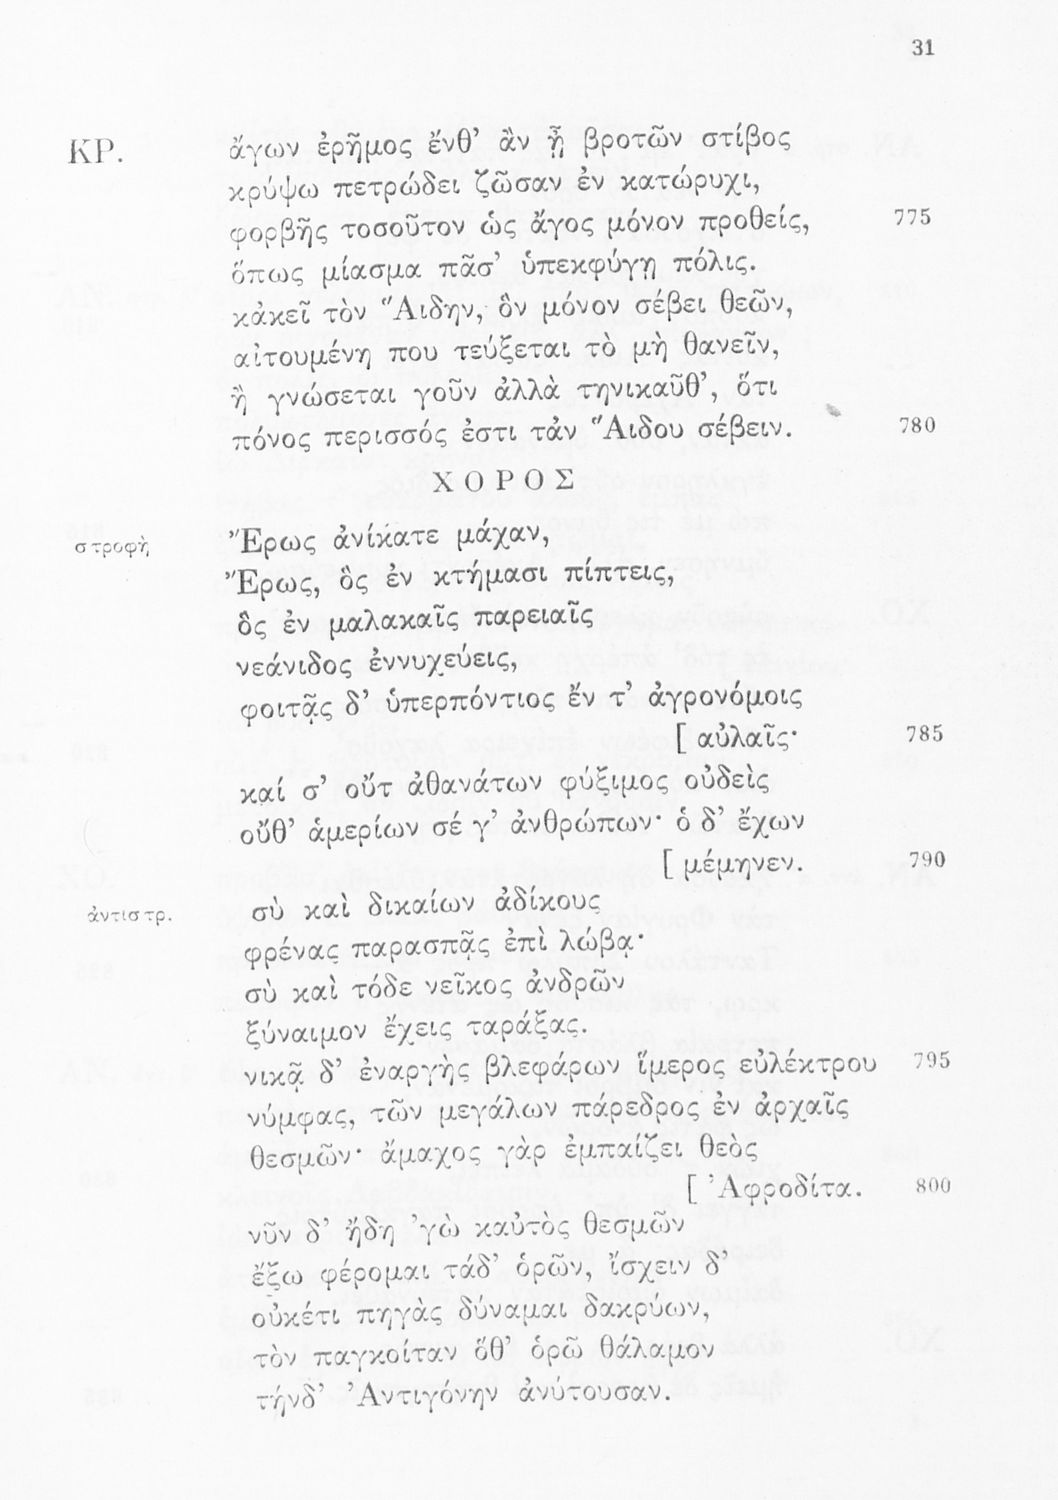 31
ΚΡ. ἄγων ἐρῆμος ἔνθ’ ἂν ᾖ βροτῶν στίβος
κρύψω πετρώδει ζῶσαν ἐν κατώρυχι,
φορβῆς τοσοῦτον ὡς ἄγος μόνον προθείς, 775
ὅπως μίασμα πᾶσ’ ὑπεκφύγῃ πόλις.
κἀκεῖ τὸν Ἅιδην, ὃν μόνον σέβει θεῶν,
αἰτουμένη που τεύξεται τὸ μὴ θανεῖν,
ἢ γνώσεται γοῦν ἀλλὰ τηνικαῦθ’, ὅτι
πόνος περισσός ἐστι τἀν Ἅιδου σέβειν. 780
ΧΟΡΟΣ
στροφὴ Ἔρως ἀνίκατε μάχαν,
Ἔρως, ὃς ἐν κτήμασι πίπτεις,
ὃς ἐν μαλακαῖς παρειαῖς
νεάνιδος ἐννυχεύεις,
φοιτᾷς δ’ ὑπερπόντιος ἔν τ’ ἀγρονόμοις
[ αὐλαῖς· 785
καί σ’ οὔτ ἀθανάτων φύξιμος οὐδεὶς
οὔθ’ ἁμερίων σέ γ’ ἀνθρώπων· ὁ δ’ ἔχων
[ μέμηνεν. 790
ἀντιστρ. σὺ καὶ δικαίων ἀδίκους
φρένας παρασπᾷς ἐπὶ λώβᾳ·
σὺ καὶ τόδε νεῖκος ἀνδρῶν
ξύναιμον ἔχεις ταράξας.
νικᾷ δ’ ἐναργὴς βλεφάρων ἵμερος εὐλέκτρου 795
νύμφας, τῶν μεγάλων πάρεδρος ἐν ἀρχαῖς
θεσμῶν· ἄμαχος γὰρ ἐμπαίζει θεὸς
[ Ἀφροδίτα. 800
νῦν δ’ ἤδη ’γὼ καὐτὸς θεσμῶν
ἔξω φέρομαι τάδ’ ὁρῶν, ἴσχειν δ’
οὐκέτι πηγὰς δύναμαι δακρύων,
τὸν παγκοίταν ὅθ’ ὁρῶ θάλαμον
τήνδ’ Ἀντιγόνην ἀνύτουσαν.